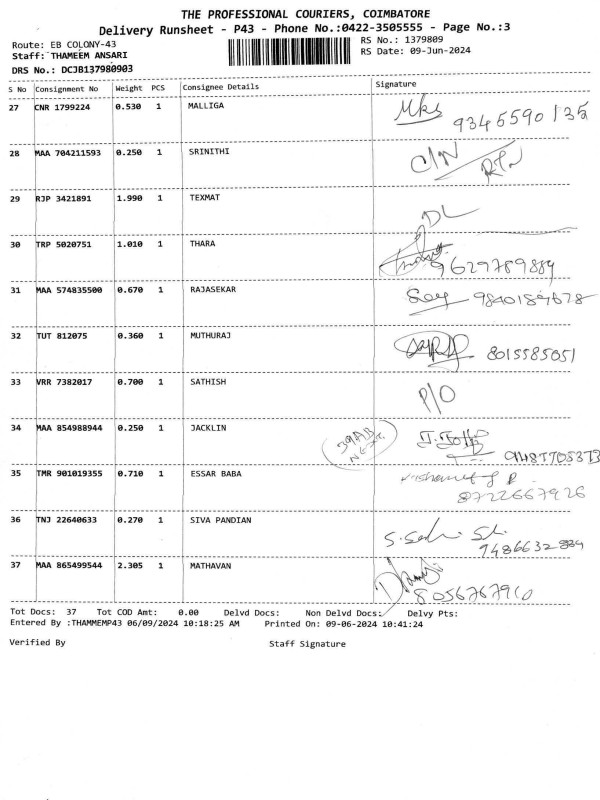 THE PROFESSIONAL COURIERS, COIMBATORE
Delivery Runsheet - P43 - Phone No.:0422-3505555 - Page No.:3
Route: EB COLONY-43 RS No.: 1379809
Staff: THAMEEM ANSARI RS Date: 09-Jun-2024
DRS No.: DCJB137980903
S No Consignment No Weight PCS Consignee Details Signature
27 CNR 1799224 0.530 1 MALLIGA 9345590135
28 MAA 704211593 0.250 1 SRINITHI C/N
29 RJP 3421891 1.990 1 TEXMAT DL
30 TRP 5020751 1.010 1 THARA 9629789889
31 MAA 574835500 0.670 1 RAJASEKAR 9840184678
32 TUT 812075 0.360 1 MUTHURAJ 8015585051
33 VRR 7382017 0.700 1 SATHISH P/O
34 MAA 854988944 0.250 1 JACKLIN 9487705373
35 TMR 901019355 0.710 1 ESSAR BABA 8722667926
36 TNJ 22640633 0.270 1 SIVA PANDIAN 9486632884
37 MAA 865499544 2.305 1 MATHAVAN 8056767910
Tot Docs: 37 Tot COD Amt: 0.00 Delvd Docs: Non Delvd Docs: Delvy Pts:
Entered By :THAMMEMP43 06/09/2024 10:18:25 AM Printed On: 09-06-2024 10:41:24
Verified By Staff Signature